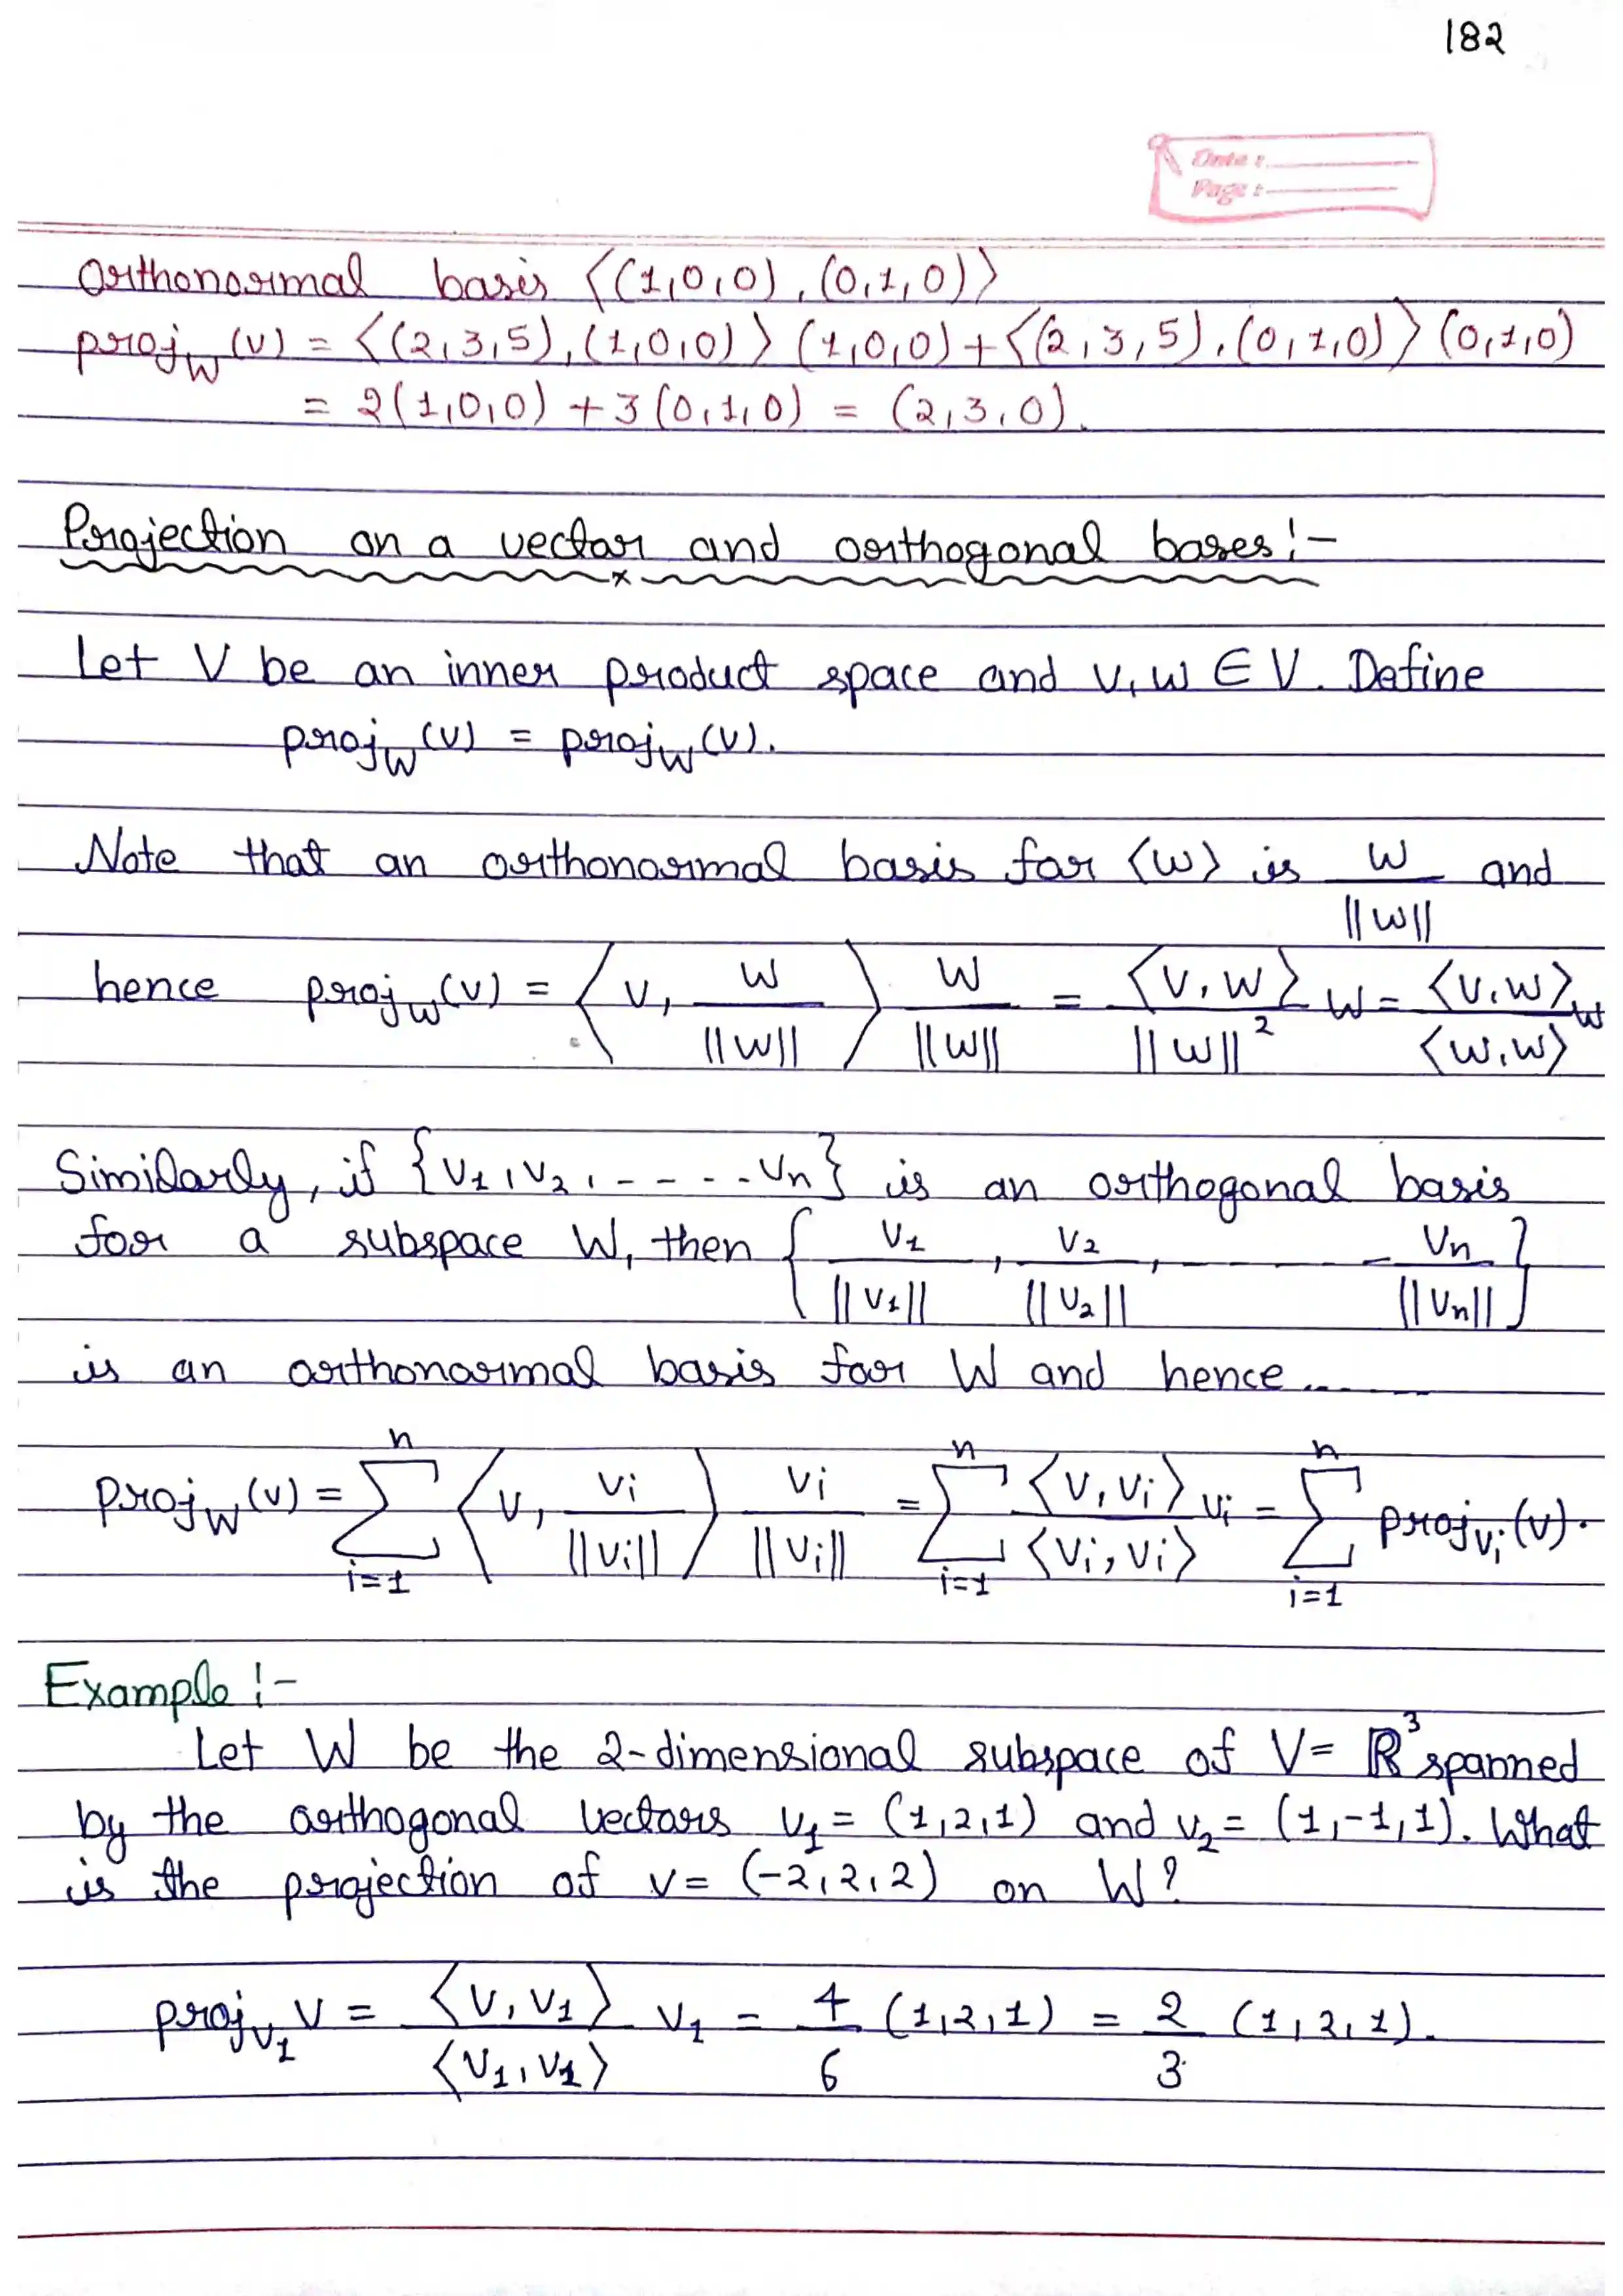 182
Date :
Page :
Orthonormal basis ⟨(1,0,0), (0,1,0)⟩
proj_W (v) = ⟨(2,3,5), (1,0,0)⟩ (1,0,0) + ⟨(2,3,5), (0,1,0)⟩ (0,1,0)
= 2(1,0,0) + 3(0,1,0) = (2,3,0).
Projection on a vector and orthogonal bases:-
Let V be an inner product space and v, w ∈ V. Define
proj_W (v) = proj_W (v).
Note that an orthonormal basis for ⟨w⟩ is w/||w|| and
hence proj_W (v) = ⟨v, w/||w||⟩ w/||w|| = ⟨v, w⟩/||w||² w = ⟨v, w⟩/⟨w, w⟩ w
Similarly, if {v₁, v₂, ----- vₙ} is an orthogonal basis
for a subspace W, then {v₁/||v₁||, v₂/||v₂||, ------ vₙ/||vₙ||}
is an orthonormal basis for W and hence......
proj_W (v) = ∑_{i=1}^{n} ⟨v, vᵢ/||vᵢ||⟩ vᵢ/||vᵢ|| = ∑_{i=1}^{n} ⟨v, vᵢ⟩/⟨vᵢ, vᵢ⟩ vᵢ = ∑_{i=1}^{n} proj_{vᵢ} (v).
Example :-
Let W be the 2-dimensional subspace of V = ℝ³ spanned
by the orthogonal vectors v₁ = (1,2,1) and v₂ = (1,-1,1). What
is the projection of v = (-2,2,2) on W?
proj_{v₁} v = ⟨v, v₁⟩/⟨v₁, v₁⟩ v₁ = 4/6 (1,2,1) = 2/3 (1,2,1).